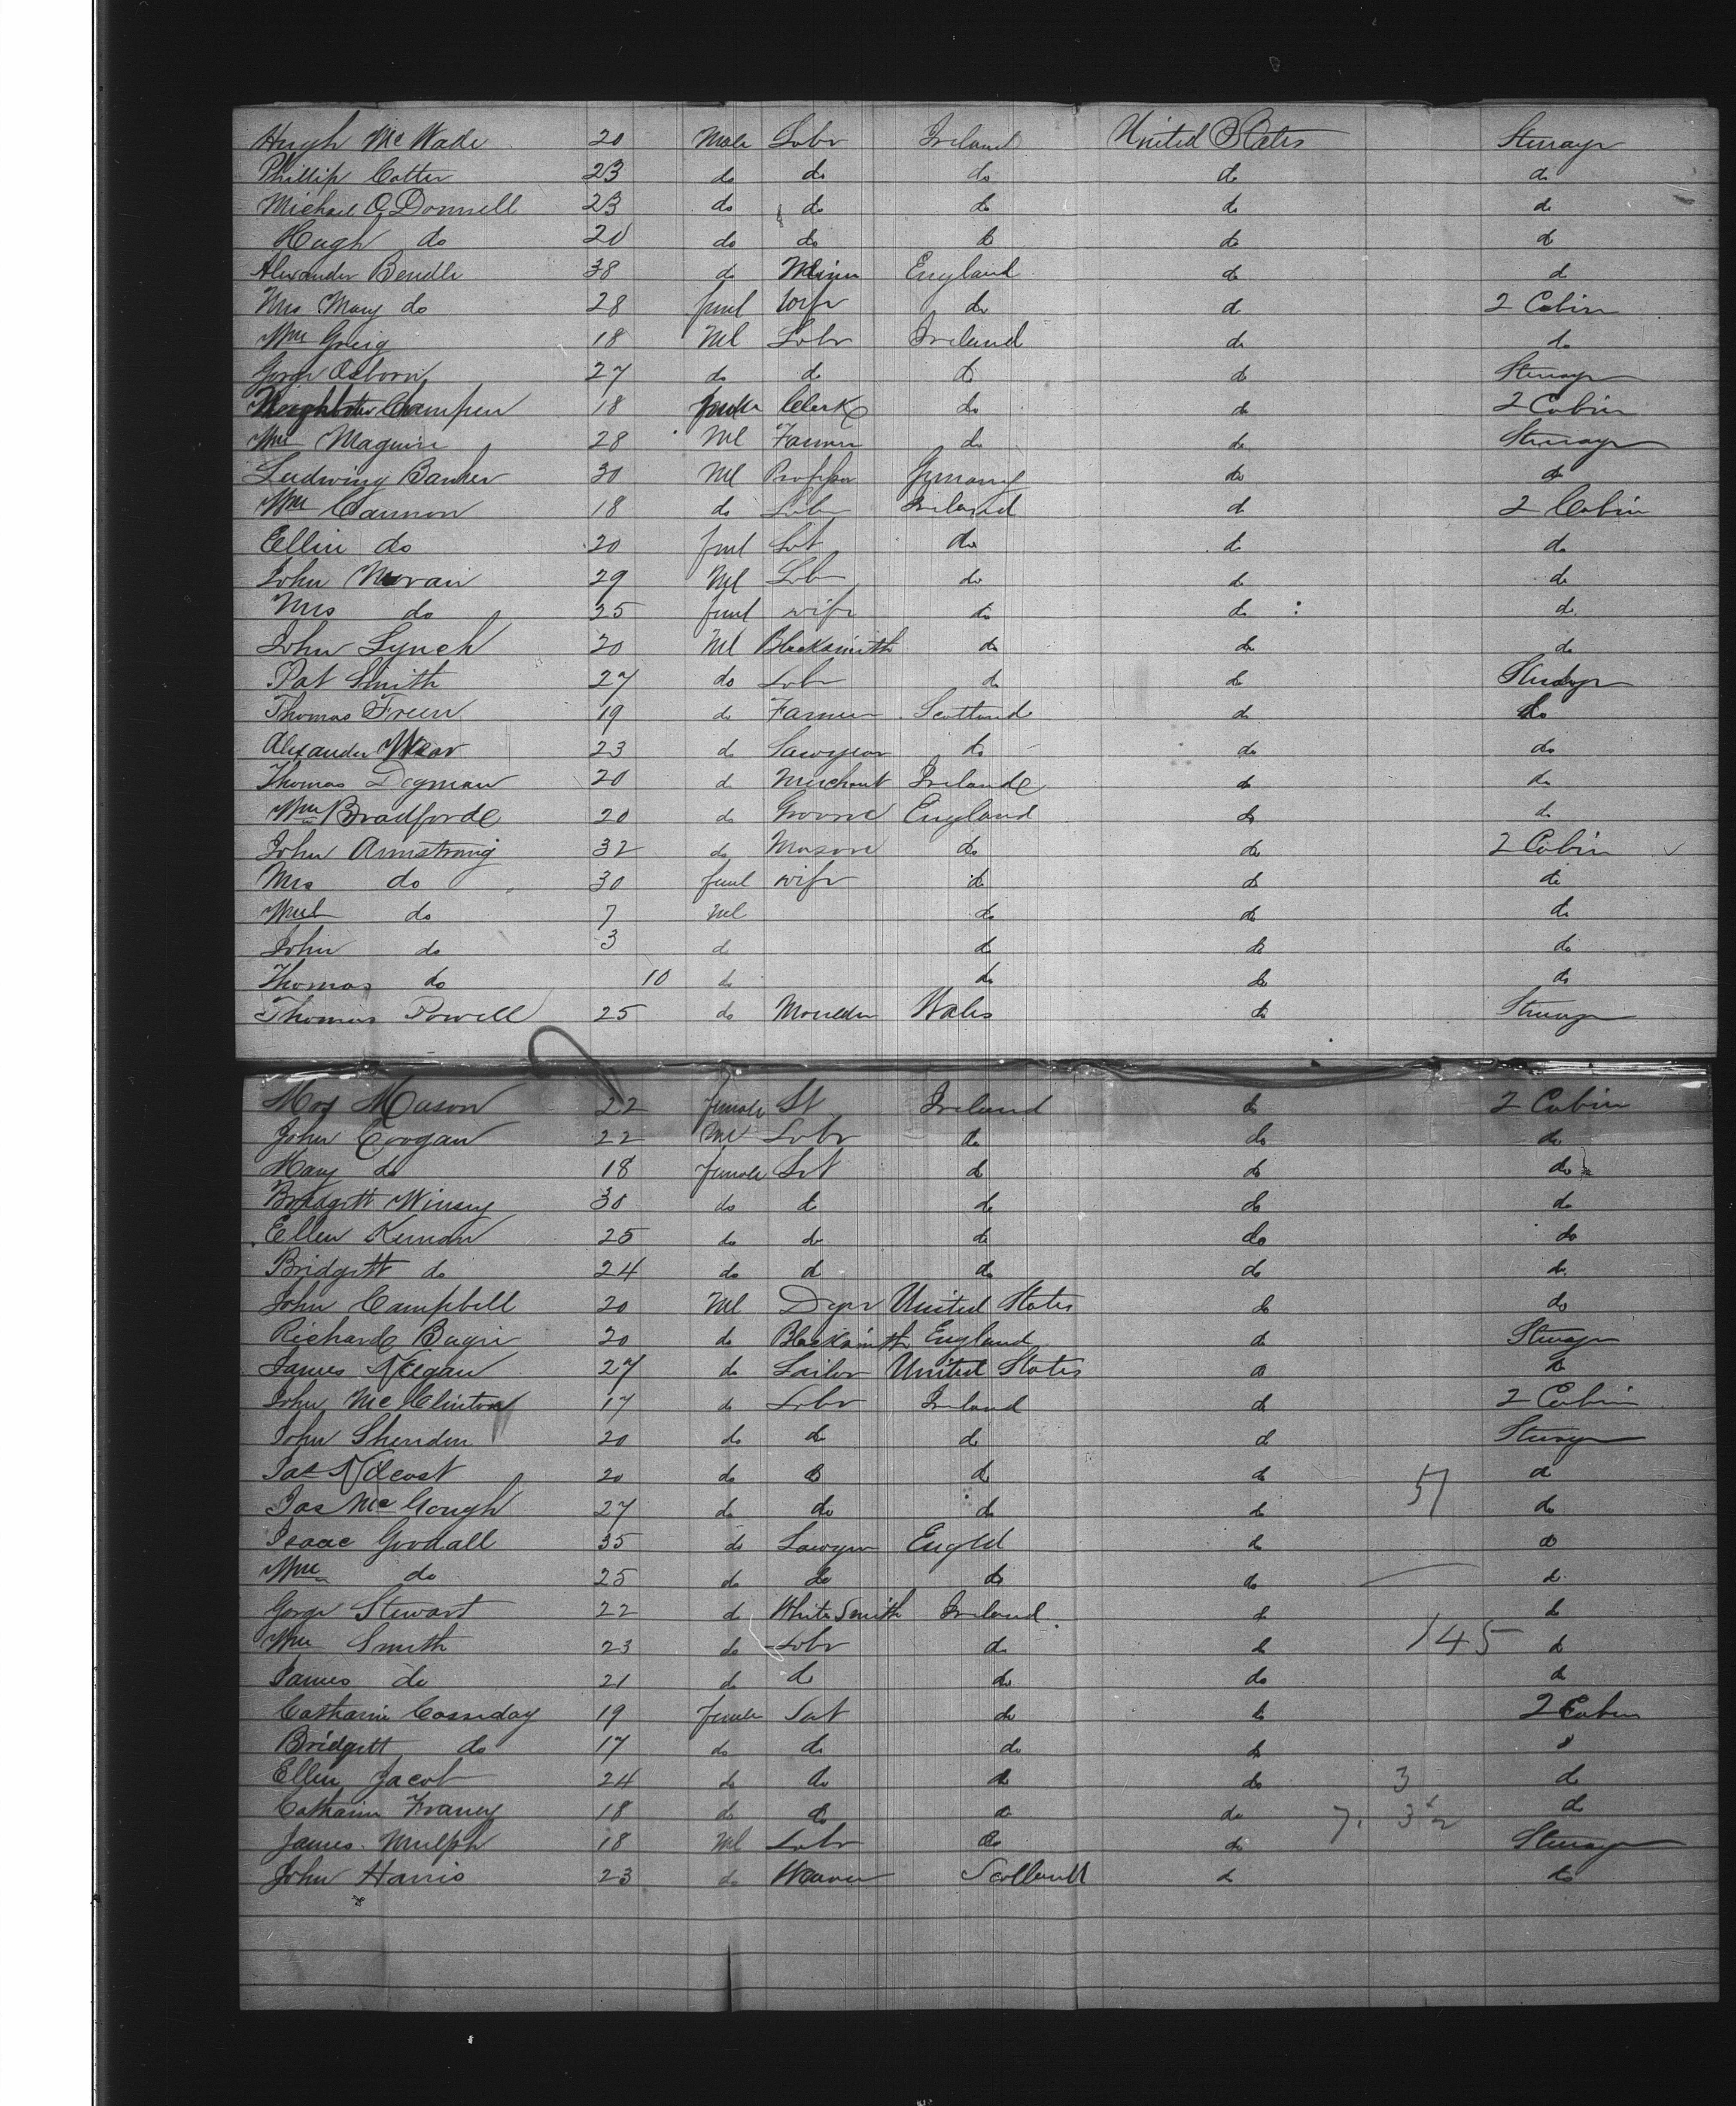 Hugh Mc Wade 20 Male Labr Ireland United States Steragr
Phillip Cotter 23 do do do do do
Michael O Donnell 23 do do do do do
Hugh do 20 do do do do do
Alexander Bendle 38 do Miner England do do
Mrs Mary do 28 feml wife do do 2 Cabin
Wm Greig 18 Ml Labr Ireland do do
Gorge Osborn 27 do do do do Steragr
18 female Clerk do do 2 Cabin
Wm Maguire 28 Ml Farmer do do Steragr
Ludwing Banker 30 Ml Germany do do
Wm Cannon 18 do Labr Ireland do 2 Cabin
Ellin do 20 feml Svt do do do
John Moran 29 Ml Labr do do do
Mrs do 25 feml wife do do do
John Lynch 20 Ml Blacksmith do do do
Pat Smith 27 do Labr do do Steragr
Thomas Freen 19 do Farmer Scotland do do
Alexander Wear 23 do Sawyear do do do
Thomas Degman 20 do Merchant Ireland do do
Wm Bradford 20 do Groom England do do
John Armstrong 32 do Mason do do 2 Cabin
Mrs do 30 feml wife do do do
Wm do 7 Ml do do do
John do 3 do do do do
Thomas do 10 do do do do
Thomas Powell 25 do Moulder Wales do Steragr
Mason 22 female St Ireland do 2 Cabin
John Coogan 22 Ml Labr do do do
Mary do 18 female Svt do do do
Bridgett Winsey 30 do do do do do
Ellen Kernan 25 do do do do do
Bridgett do 24 do do do do do
John Campbell 20 Ml Dyer United States do do
Richard Bagri 20 do Blacksmith England do Steragr
James Keegan 27 do Sailor United States do do
John Mc Clinton 17 do Labr Ireland do 2 Cabin
John Sheriden 20 do do do do Steragr
20 do do do do do
Jas Mc Gough 27 do do do do 51 do
Isaac Goodall 35 do Sawyer Engld do do
Wm do 25 do do do do do
Gorge Stewart 22 do White Smith Ireland do do
Wm Smith 23 do Labr do do 145 do
James do 21 do do do do do
Catharin Cassiday 19 female Svt do do 2 Cabin
Bridgett do 17 do do do do
Ellen Jacob 24 do do do do 3 do
Catharin Franey 18 do do do do do
James Mulph 18 Ml Labr do do Steragr
John Harris 23 do Weaver Scotland do do